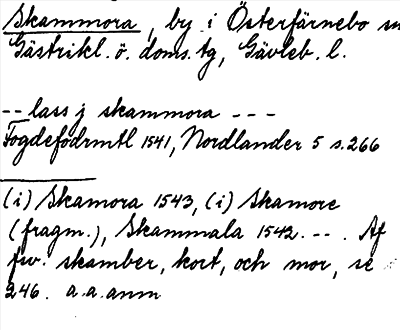 Skammora, by i Österfärnebo sn
Gästrikl. ö. doms.tg, Gävleb. l.
-- lass j skammora ---
Fogdefodrmtl 1541, Nordlander 5 s.266
(i) Skamora 1543, (i) Skamore
(fragm.), Skammala 1542. --. Af
fsv. skamber, kort, och mor, se
246. a.a. anm